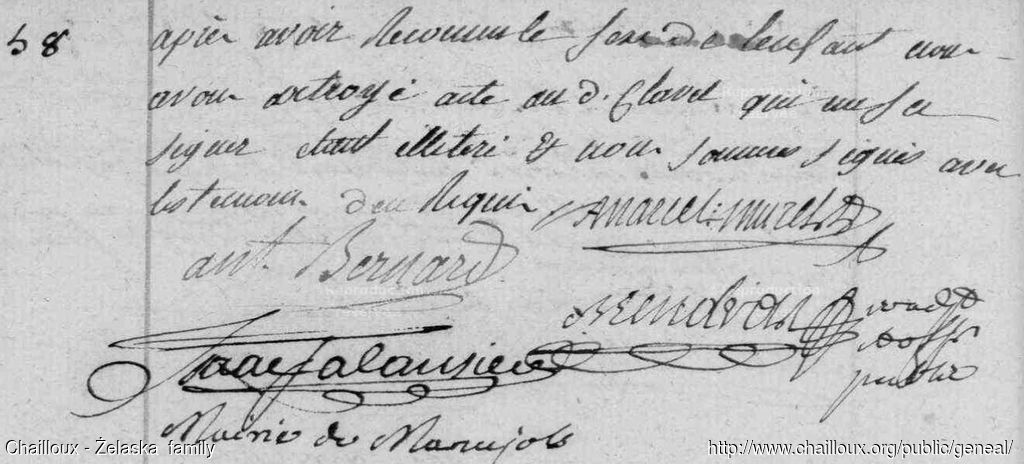 58
après avoir Reconnu le sexe de lenfant nous
avons octroyé acte au d. Clavel qui na su
signer étant illiteré & nous sommes signés avec
les temoins deu Requis
ant. Bernard
Isaac falansier
Mairie de Maruejols
Chailloux - Żelaska family
http://www.chailloux.org/public/geneal/